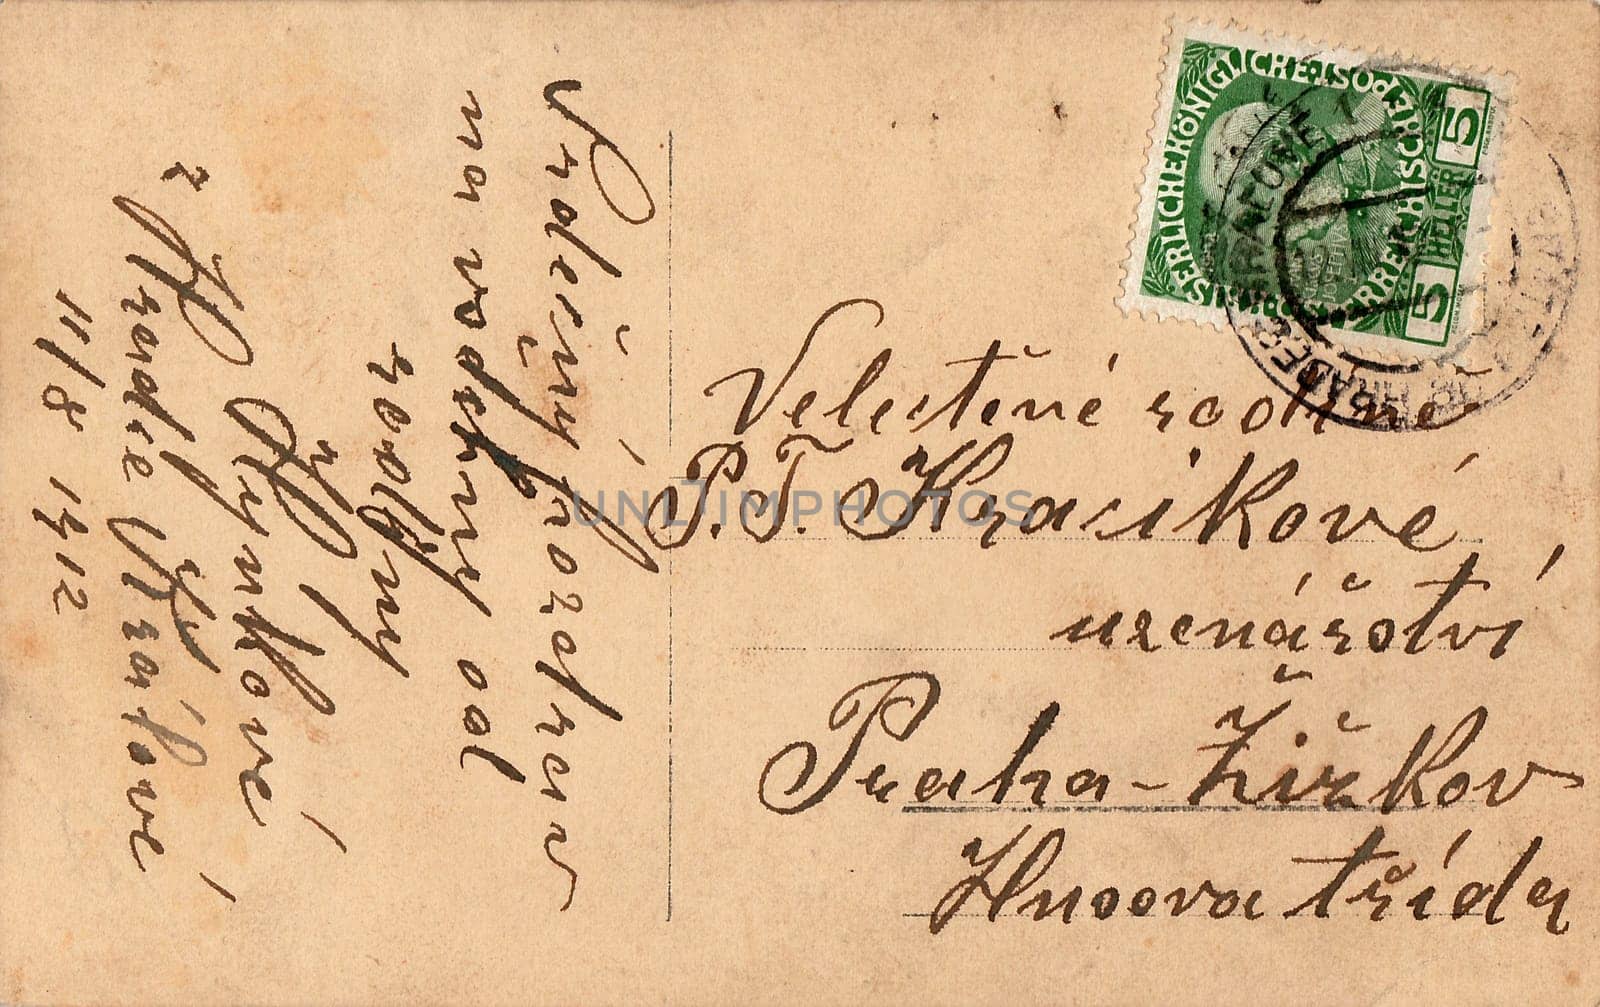 Srdečný pozdrav
na vodchny od
rodyny
Hynkové
z Hradce Králové
11/8 1912
KAISERLICHEKÖNIGLICHE
ÖSTERREICHISCHE POST
5 HELLER 5
Velectěné rodině
P. T. Krasikové
uzenářství
Praha-Žižkov
Husova třída
UNLIMPHOTOS